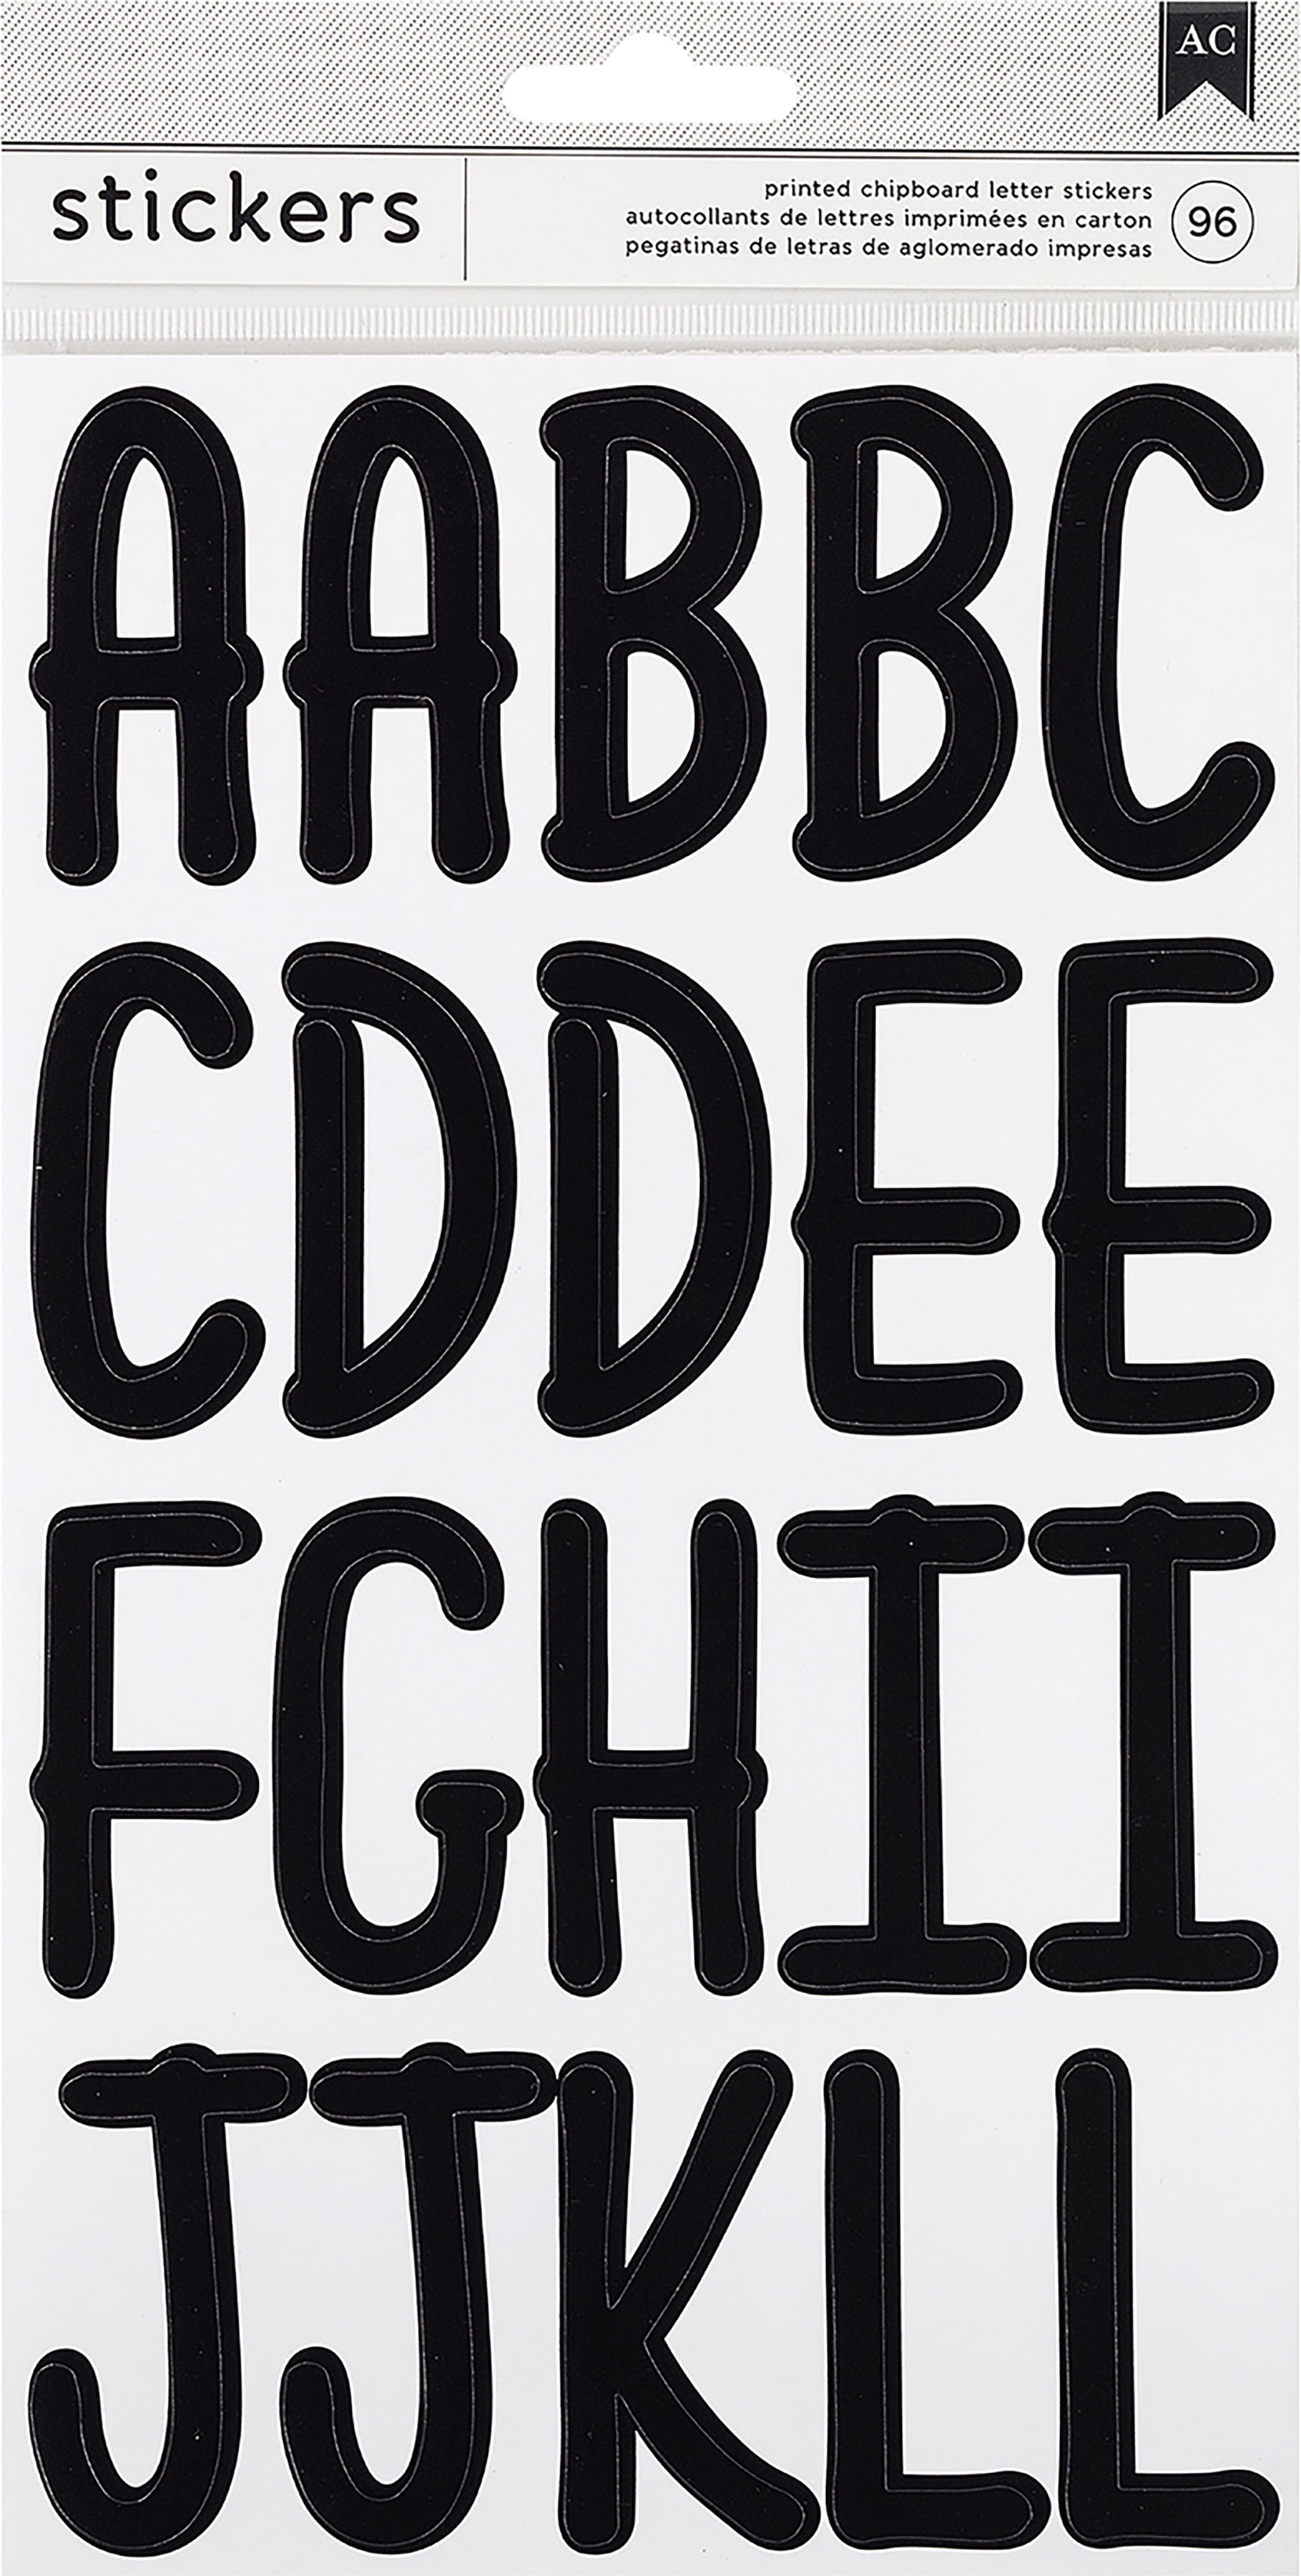 AC
stickers
printed chipboard letter stickers
autocollants de lettres imprimées en carton
pegatinas de letras de aglomerado impresas
96
AABBC
CDDEE
FGHII
JJKLL